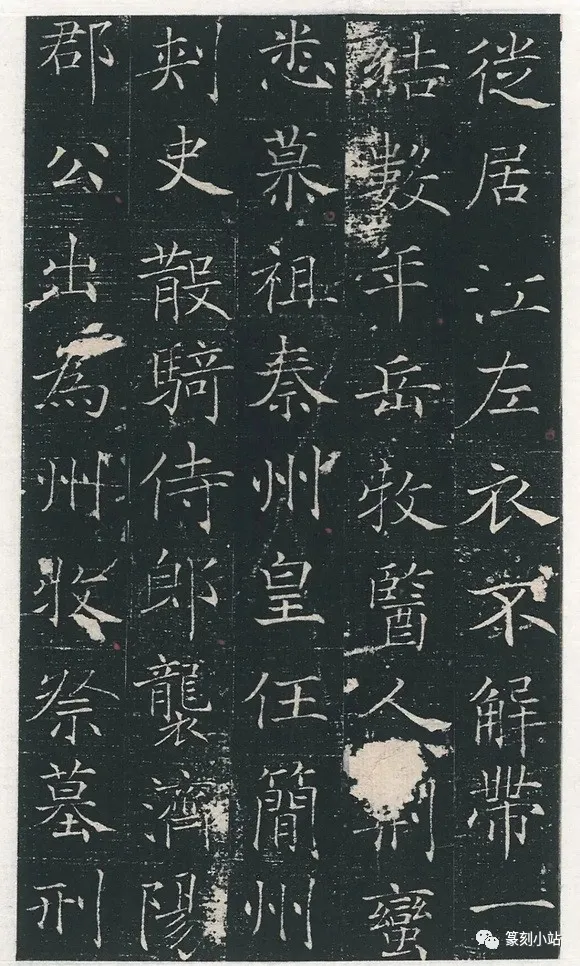 徙居江左衣不解帶一
結數年岳牧醫人荆蠻
悉慕祖秦州皇任簡州
刺史散騎侍郎襲濟陽
郡公出為州牧祭墓刑
篆刻小站